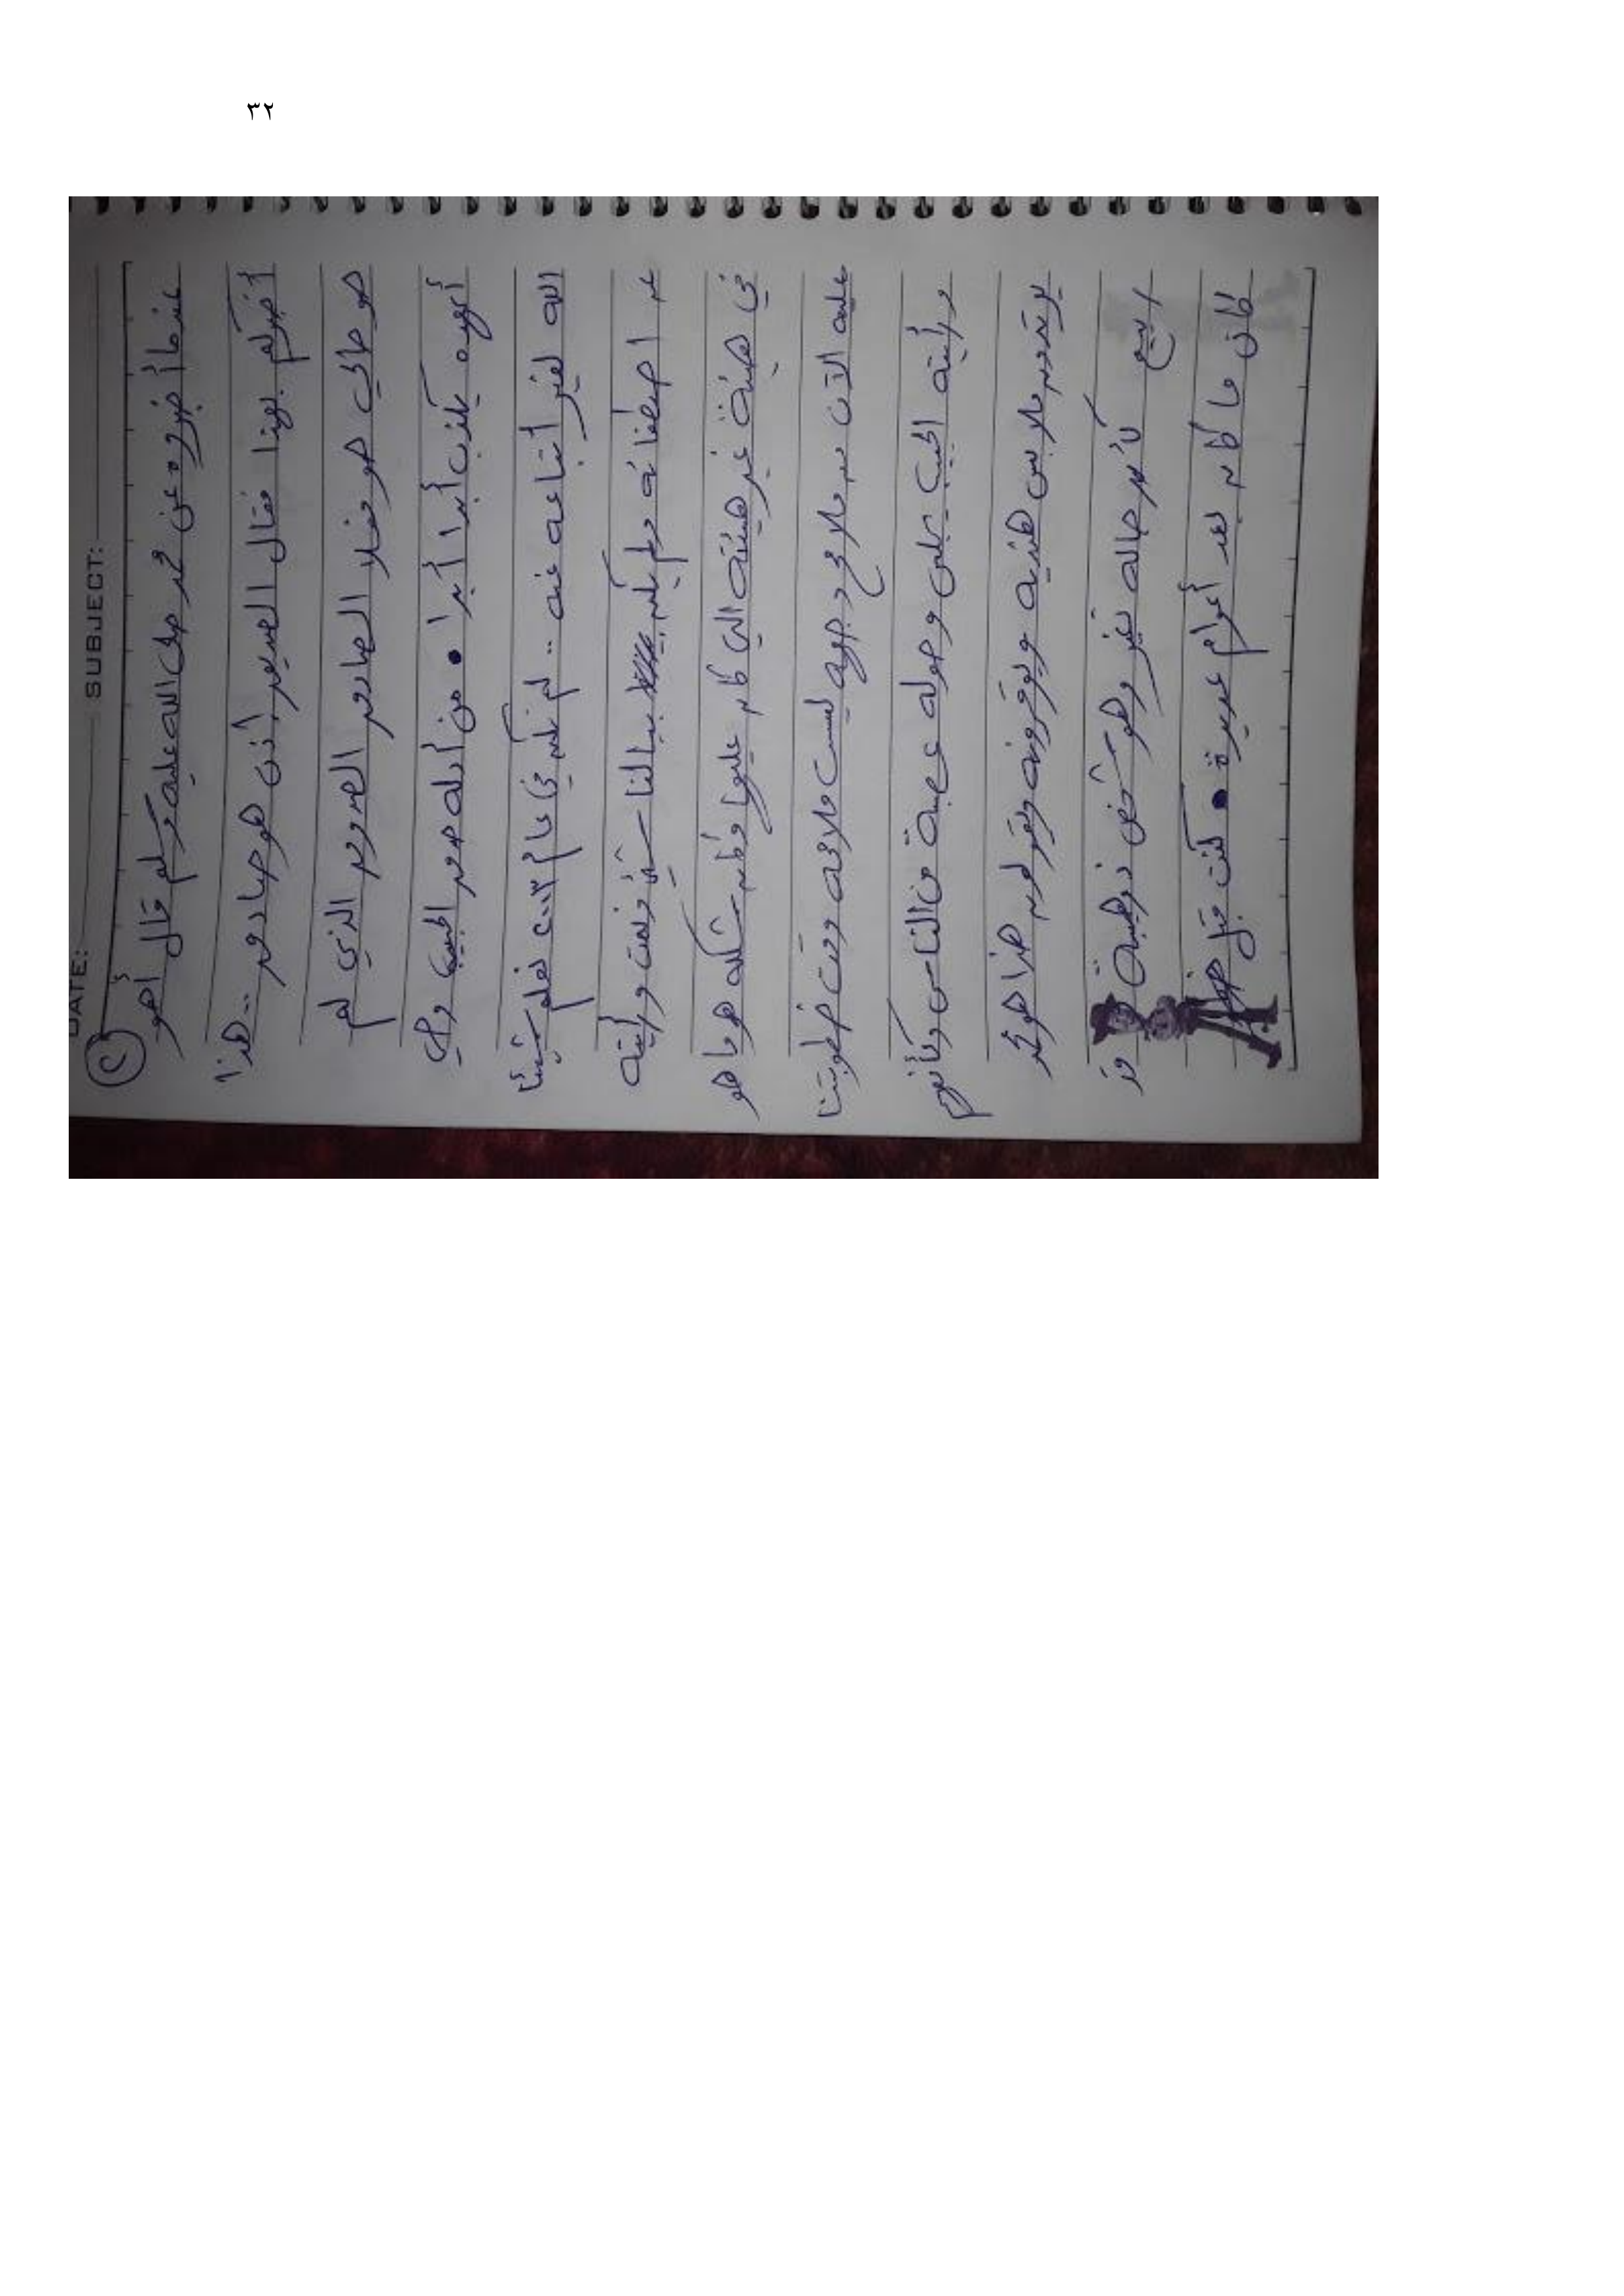 ٣٢
DATE: SUBJECT:
٢
عندما أخبروه عن محمد صلى الله عليه وسلم قال أهو
أخبركم بهذا فقال الصديق إذن هو صادق .. هذا
هو حالي هو فعلا الصادق الصدوق الذي لم
أعهده يكذب أبدا أبدا • من أدلة صدق الحبيب وحي
الله لغير أتباعه عنه .. لم نكن في عام ٢٠٠٣ نعلم شيئا
عن اصطفائه ولم يكن ببالنا شئ فنمت ورأيته
في هيئة غير هيئته التي كان عليها وكان شكله هو ما هو
عليه الآن من ملامح وجهه ليست ملامحه وقت خطوبتنا
ورأيته الحبيب يجلس وحوله عصبة من الناس وكأنهم
يرتدون ملابس هندية ويوقرونه ويقولون هذا هو محمد
ربيع كأن حاله تغير وهو شخص ذو هيبة قد
كان ما كان بعد أعوام عديدة • كنت قبل